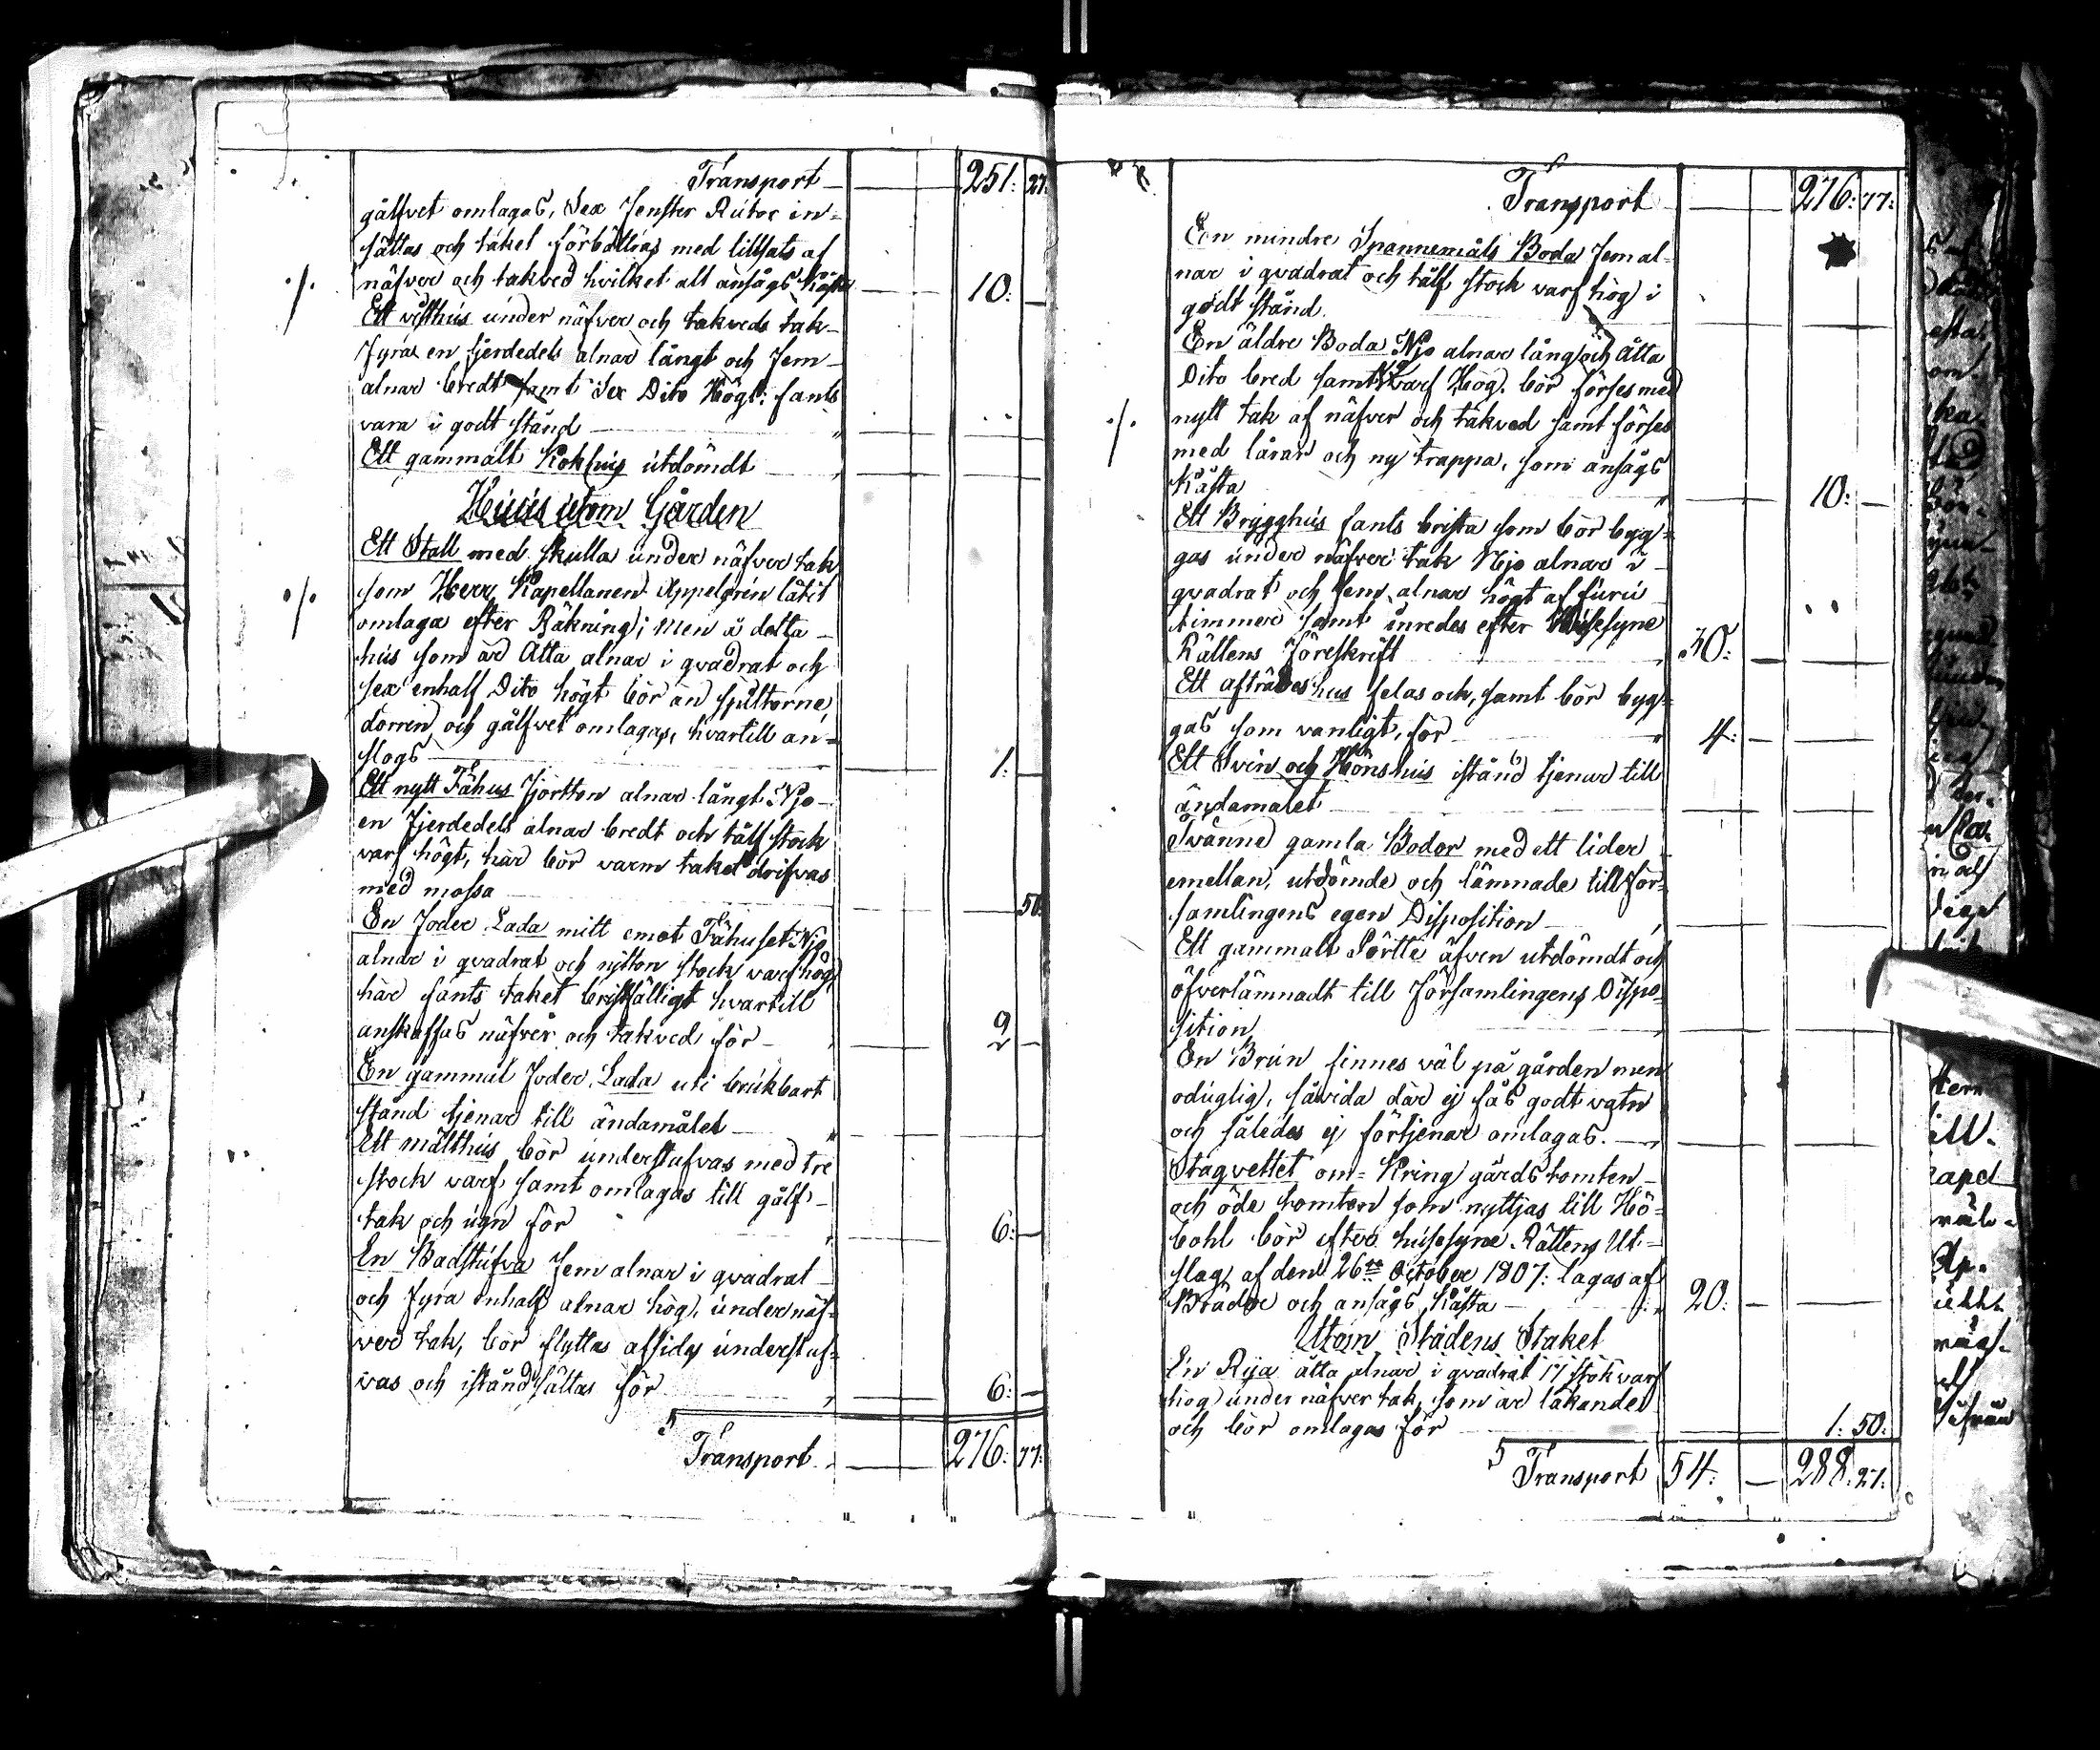 Transport 251: 27:
gålfvet omlagas, Sex Fenster Rutor in-
sättas och taket förbättras med tillsats af
näfver och takved hvilket alt ansågs kåsta 10: —
Ett visthus under näfver och takveds tak
Fyra en fjerdedels alnar långt och Fem
alnar bredt samt Sex Dito Högt: fants
vara i godt stånd
Ett gammalt Kokhus utdömdt
Huus utom Gården
Ett Stall med skulla under näfver tak
som Herr Kapellanen Appelgrin låtit
omlaga efter Räkning; Men å detta
hus som är Åtta alnar i qvadrat och
sex enhalf Dito högt bör än spiltorne,
dörren och gålfvet omlagas, hvartill an-
slogs 1: —
Ett nytt Fähus Fjortton alnar långt Nio
en Fjerdedels alnar bredt och tålf stock
varf högt, här bör varm taket drifvas
med mossa 50:
En Foder Lada mitt emot Fähuset Nio
alnar i qvadrat och nitton stock varf hög,
här fants taket bristfälligt hvartill
anskaffas näfver och takved för 2 —
En gammal Foder Lada uti brukbart
stånd tjenar till ändamålet
Ett mälthus bör understufvas med tre
stock varf, samt omlagas till gålf
tak och ugn för 6: —
En Badstufva Fem alnar i qvadrat
och Fyra enhalf alnar hög, under näf-
ver tak, bör flyttas afsides understuf-
vas och iståndsättas för 6: —
Transport 276: 77:
Transport 276: 77:
En mindre Spannemåls Boda Fem al-
nar i qvadrat och tålf stock varf hög i
godt stånd
En äldre Boda Nio alnar lång och Åtta
Dito bred samt varf Hög. bör förses med
nytt tak af näfver och takved samt förses
med lårar och ny trappa, som ansågs
Kåsta 10: —
Ett Brygghus fants brista som bör byg-
gas under näfver tak Nio alnar i
qvadrat och Fem alnar högt af furu
timmer samt inredes efter Husesyne
Rättens Föreskrift 30: —
Ett afträdes hus felas ock, samt bör byg-
gas som vanligt, för 4: —
Ett Svin och Höns hus istånd tjenar till
ändamålet
Tvänne gamla Bodor med ett lider
emellan, utdömde och lämnade till För-
samlingens egen Disposition
Ett gammalt Pörtte äfven utdömdt och
öfverlämnadt till Församlingens Dispo-
sition
En Brun finnes väl på gården men
oduglig, såvida där ej fås godt vatn
och således ej förtjenar omlagas.
Stagvettet om-Kring gårds tomten
och öde tomten som nyttjas till Hö-
bohl bör efter husesyne Rättens Ut-
slag af den 26te October 1807: lagas af
Bräder och ansågs Kåsta 20: —
Utom Stadens Staket
En Rija åtta alnar i qvadrat 17 stok varf
hög under näfver tak, som är läkande
och bör omlagas för 1: 50:
Transport 54: — 288: 27: